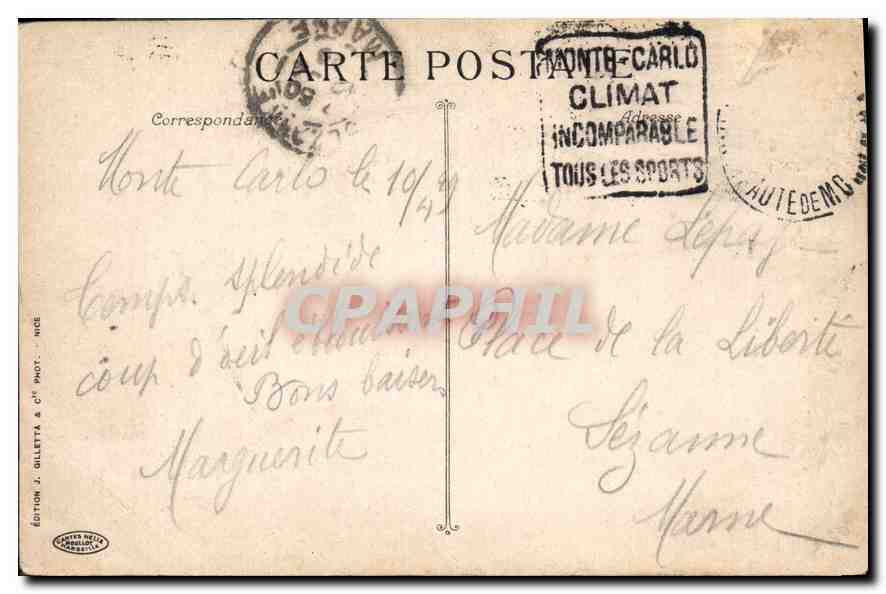 CARTE POSTALE
Correspondance
Adresse
MONTE-CARLO
CLIMAT
INCOMPARABLE
TOUS LES SPORTS
MARNE
AUTE DE MC
Monte Carlo le 10/49
Temps splendide
coup d'oeil
Bons baisers
Marguerite
Madame
Place de la Liberté
Sézanne
Marne
CPAPHIL
ÉDITION J. GILLETTA & Cie PHOT. - NICE
CARTES HELIA
MOULLOT
MARSEILLE